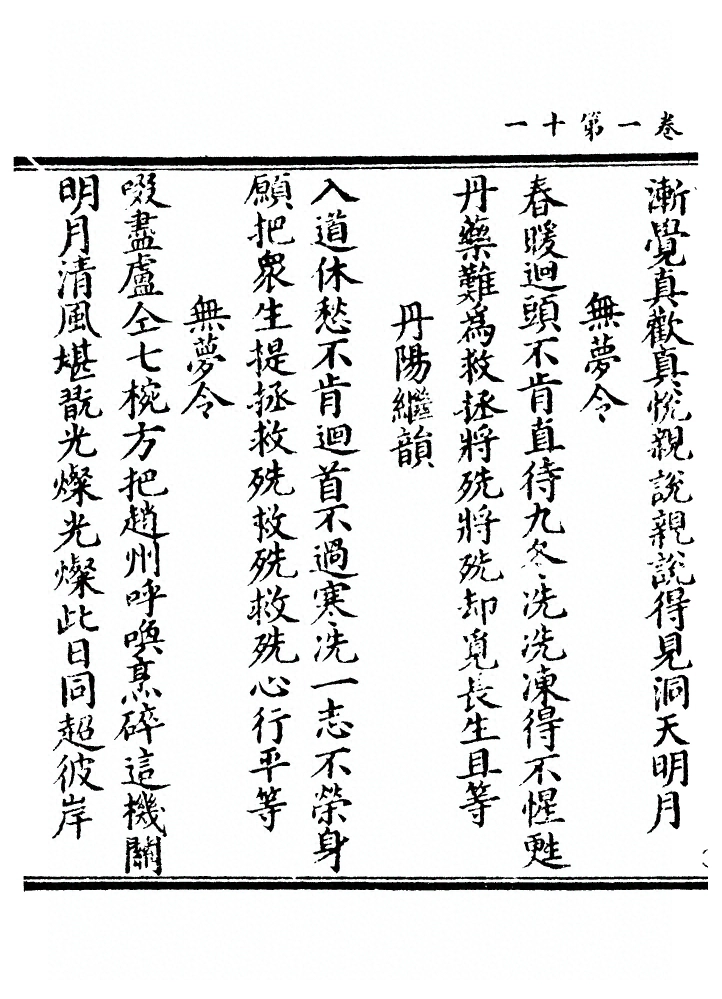 卷一第十一
漸覺真歡真悅親說親說得見洞天明月
無夢令
春暖迴頭不肯直待九冬冼冼凍得不惺甦
丹藥難為救拯將殑將殑却覓長生且等
丹陽繼韻
入道休愁不肯迴首不過寒冼一志不榮身
願把眾生提拯救殑救殑救殑心行平等
無夢令
啜盡盧仝七椀方把趙州呼喚烹碎這機關
明月清風堪翫光燦光燦此日同超彼岸